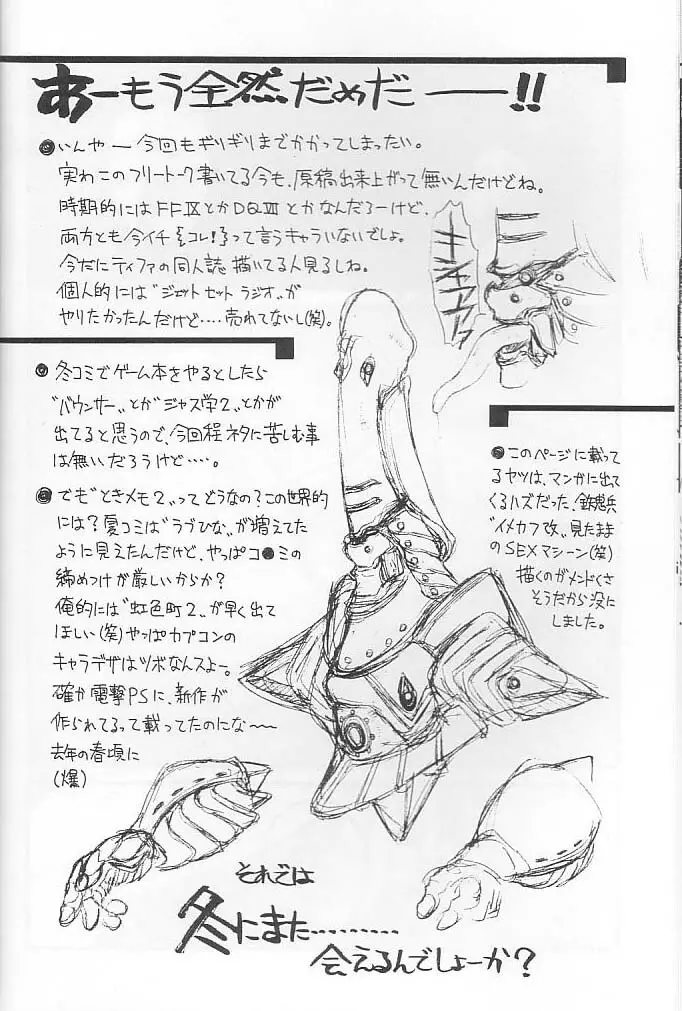 あーもう全然だめだ――!!
◎いんやー今回もギリギリまでかかってしまったい。
実わこのフリートーク書いてる今も、原稿出来上がって無いんだけどね。
時期的にはFFⅨとかDQⅦとかなんだろーけど、
両方とも今イチ{コレ!}って言うキャラいないでしょ。
今だにティファの同人誌描いてる人見るしね。
個人的には〝ジェットセットラジオ〟が
やりたかったんだけど‥‥売れてないし(笑)。
●冬コミでゲーム本をやるとしたら
〝バウンサー〟とか〝ジャス学2〟とかが
出てると思うので、今回程ネタに苦しむ事
は無いだろうけど‥‥。
◎でも〝ときメモ2〟ってどうなの?この世界的
には?夏コミは〝ラブひな〟が増えてた
ように見えたんだけど、やっぱコ●ミの
締めつけが厳しいからか?
俺的には〝虹色町2〟が早く出て
ほしい(笑)やっぱカプコンの
キャラデザはツボなんスよー。
確か電撃PSに、新作が
作られてるって載ってたのにな〜〜
去年の春頃に
(爆)
●このページに載って
るヤツは、マンガに出て
くるハズだった、鉄騎兵
〝イメカフ改〟見たまま
のSEXマシーン(笑)
描くのがメンドくさ
そうだから没に
しました。
それでは
冬にまた‥‥‥‥‥
会えるんでしょーか?